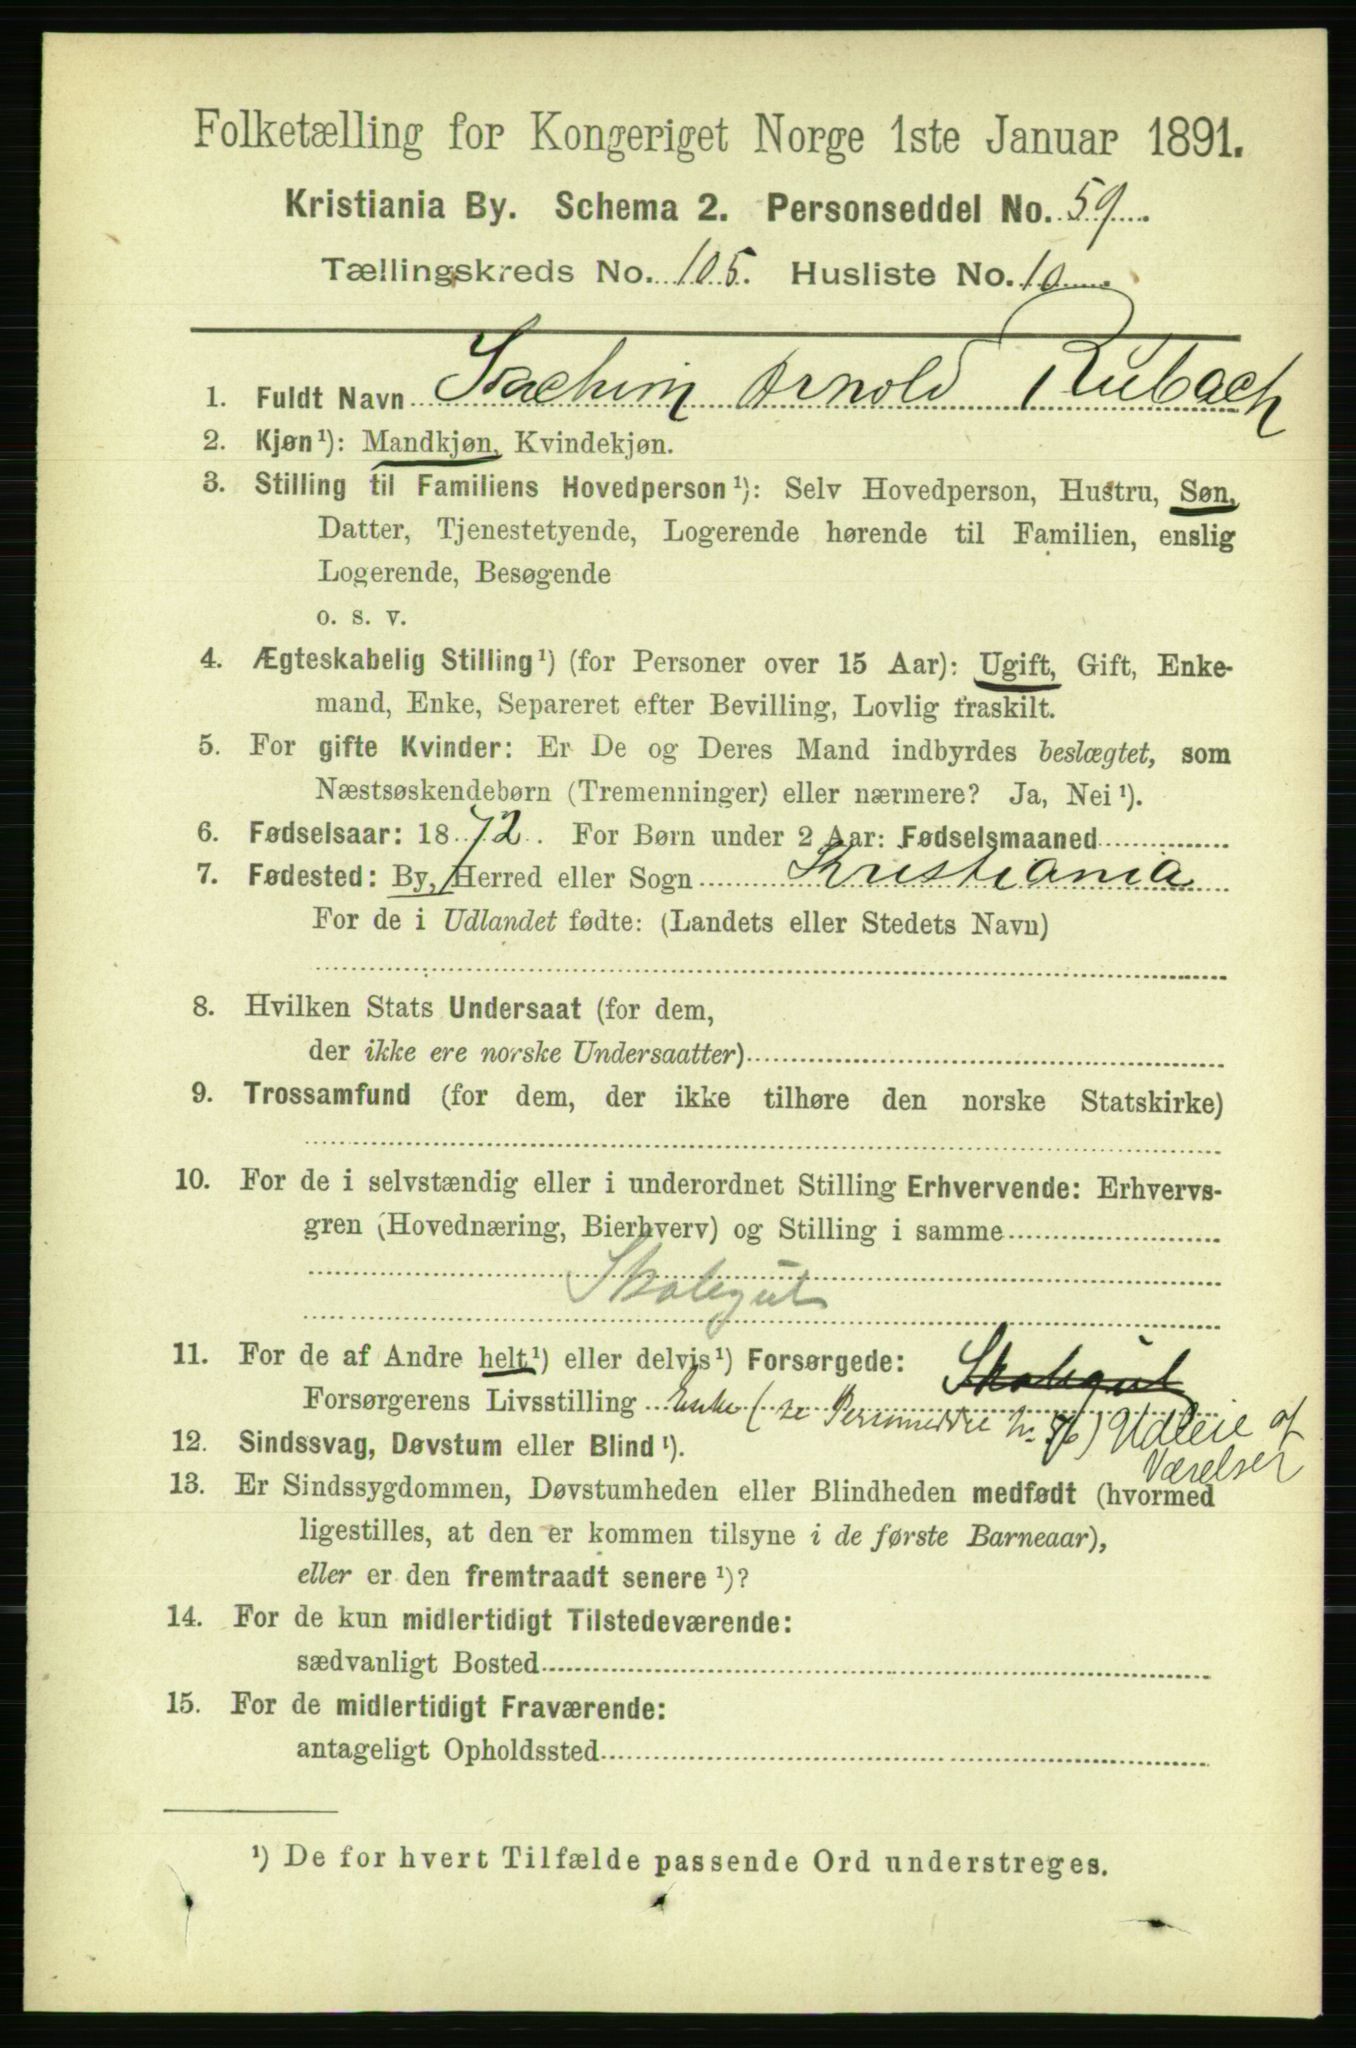 Folketælling for Kongeriget Norge 1ste Januar 1891.
Kristiania By. Schema 2. Personseddel No. 59
Tællingskreds No. 105. Husliste No. 10
1. Fuldt Navn Joachim Arnold Rubach
2. Kjøn¹): Mandkjøn, Kvindekjøn.
3. Stilling til Familiens Hovedperson¹): Selv Hovedperson, Hustru, Søn,
Datter, Tjenestetyende, Logerende hørende til Familien, enslig
Logerende, Besøgende
o. s. v.
4. Ægteskabelig Stilling¹) (for Personer over 15 Aar): Ugift, Gift, Enke-
mand, Enke, Separeret efter Bevilling, Lovlig fraskilt.
5. For gifte Kvinder: Er De og Deres Mand indbyrdes beslægtet, som
Næstsøskendebørn (Tremenninger) eller nærmere? Ja, Nei¹).
6. Fødselsaar: 1872. For Børn under 2 Aar: Fødselsmaaned
7. Fødested: By, Herred eller Sogn Kristiania
For de i Udlandet fødte: (Landets eller Stedets Navn)
8. Hvilken Stats Undersaat (for dem,
der ikke ere norske Undersaatter)
9. Trossamfund (for dem, der ikke tilhøre den norske Statskirke)
10. For de i selvstændig eller i underordnet Stilling Erhvervende: Erhvervs-
gren (Hovednæring, Bierhverv) og Stilling i samme
Skolegut
11. For de af Andre helt¹) eller delvis¹) Forsørgede: Skolegut
Forsørgerens Livsstilling Enke (se Personseddel No. ) Udleie af
Værelser
12. Sindssvag, Døvstum eller Blind¹).
13. Er Sindssygdommen, Døvstumheden eller Blindheden medfødt (hvormed
ligestilles, at den er kommen tilsyne i de første Barneaar),
eller er den fremtraadt senere¹)?
14. For de kun midlertidigt Tilstedeværende:
sædvanligt Bosted
15. For de midlertidigt Fraværende:
antageligt Opholdssted
¹) De for hvert Tilfælde passende Ord understreges.